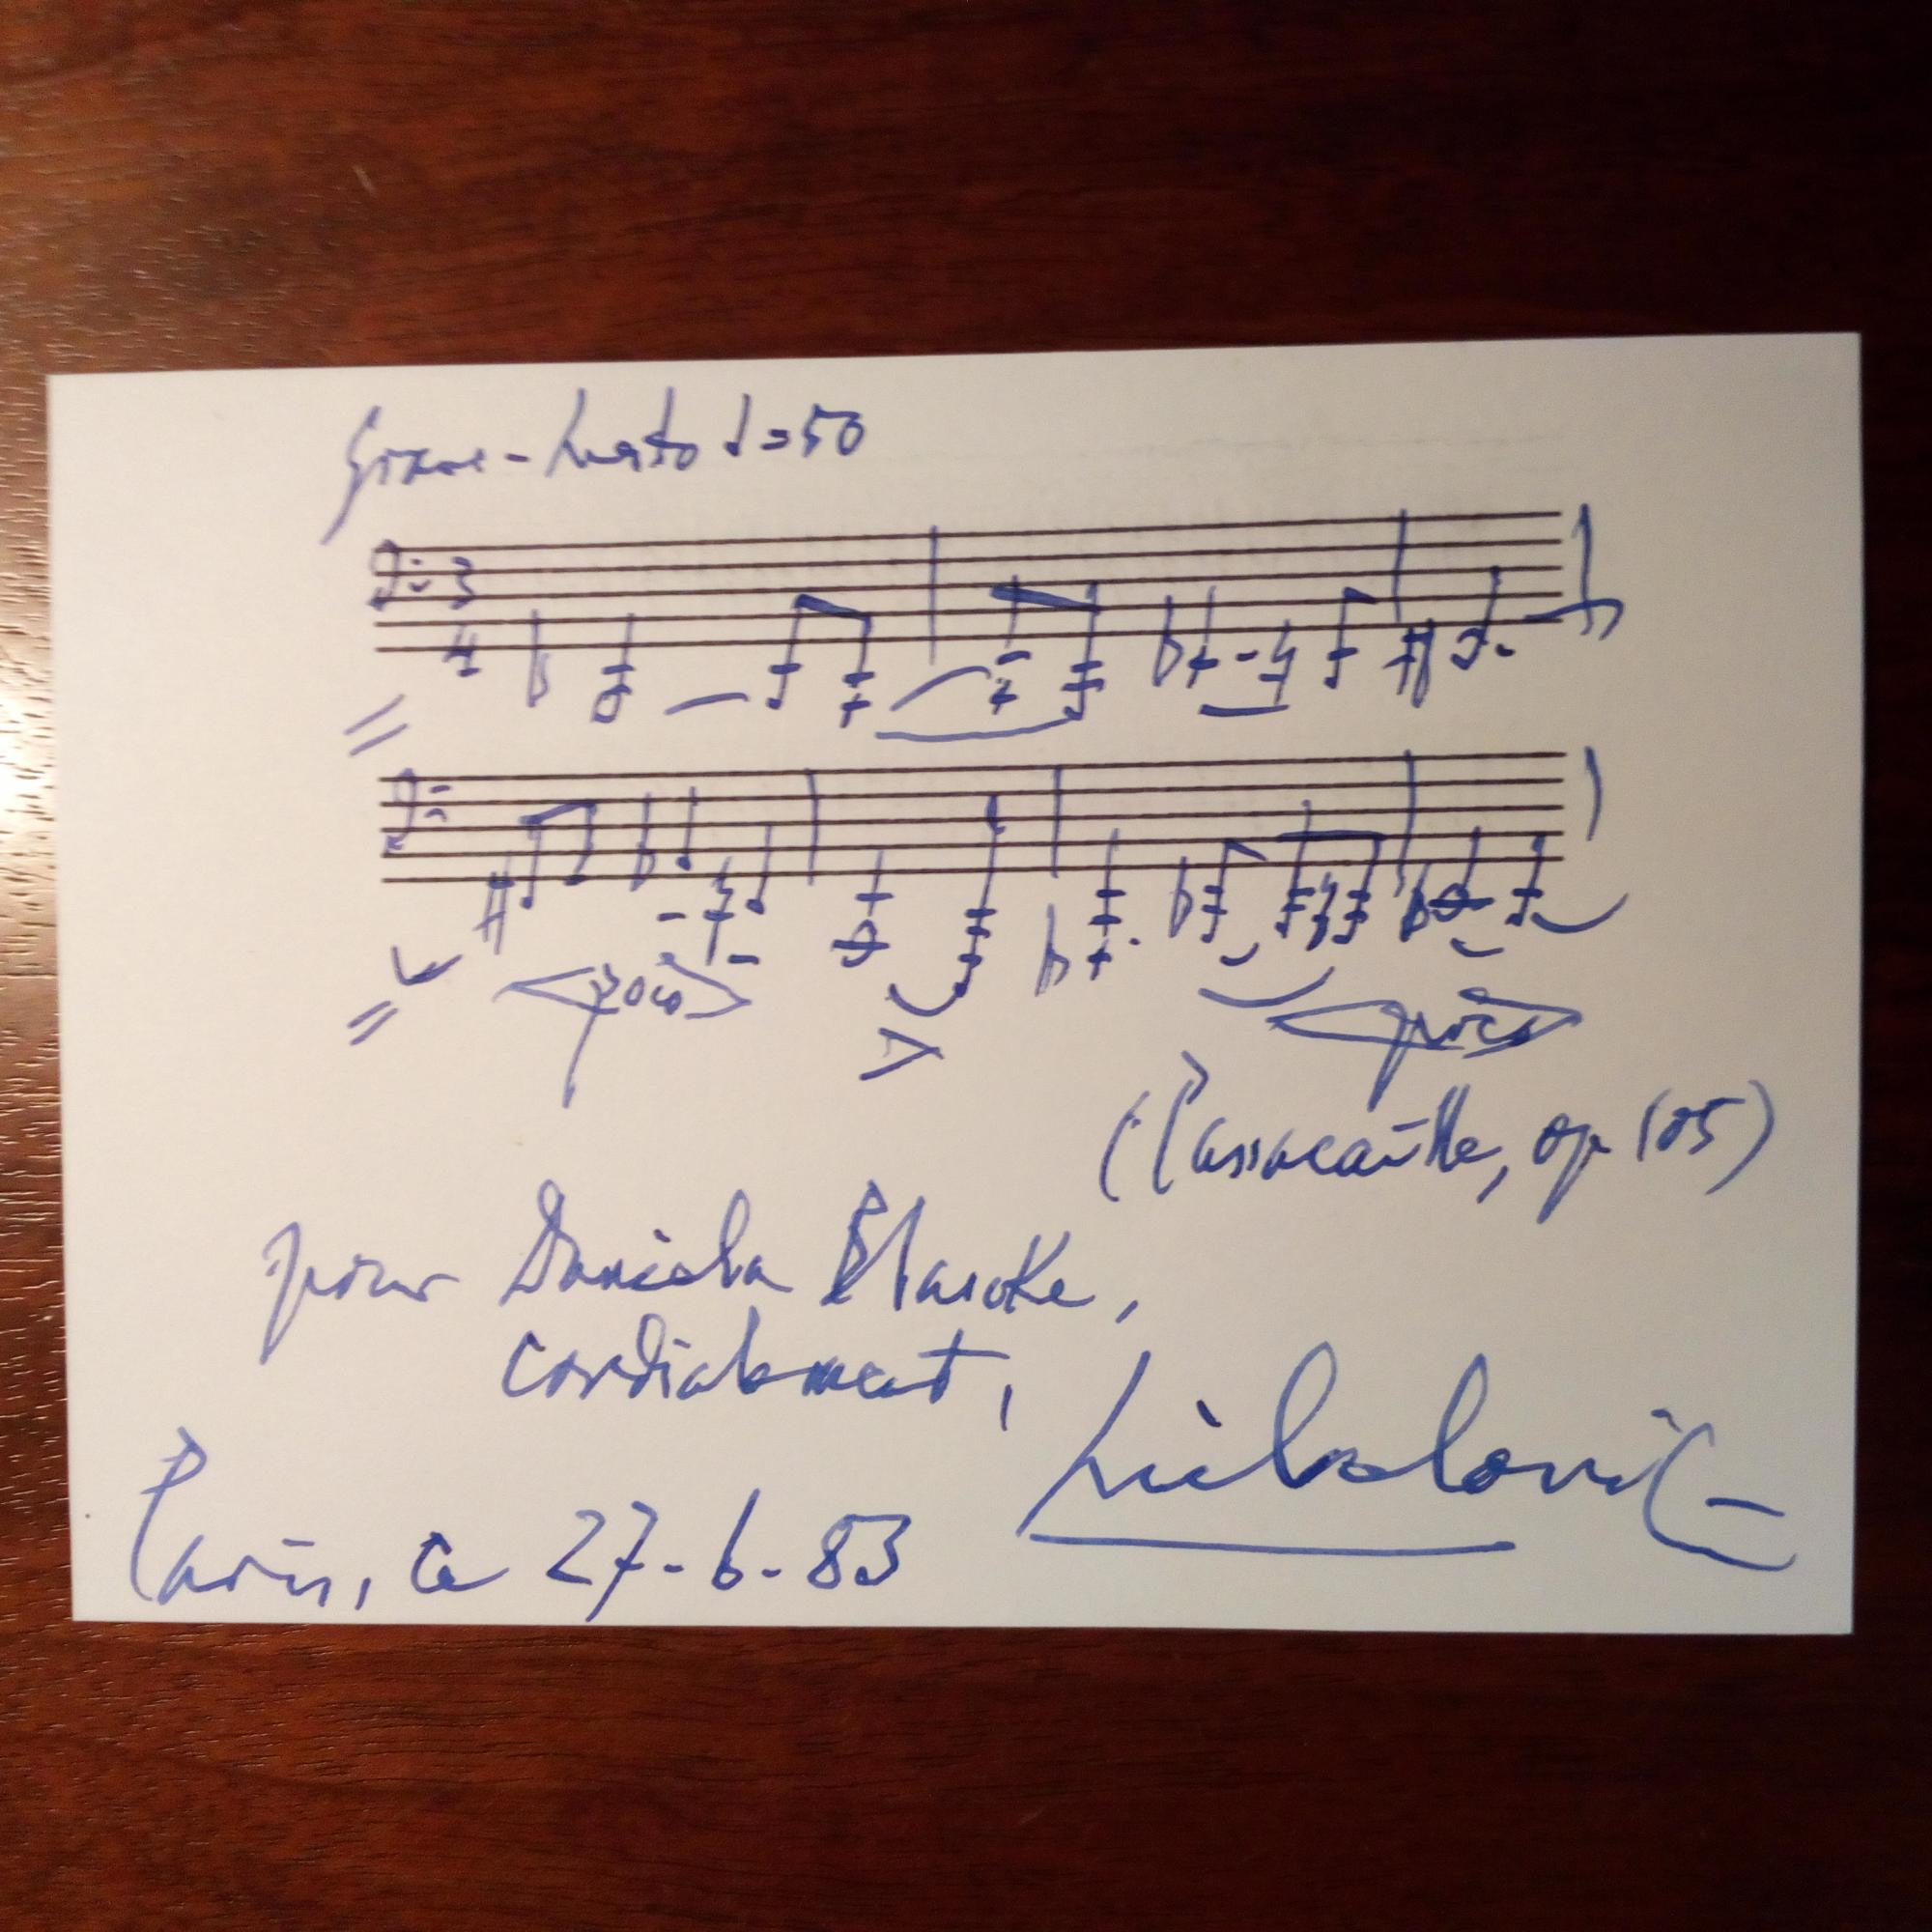 Grave - Lento ♩=50
3
4
poco
poco
(Passacaille, op 105)
pour Daniela
cordialement,
Paris, ce 27-6-83